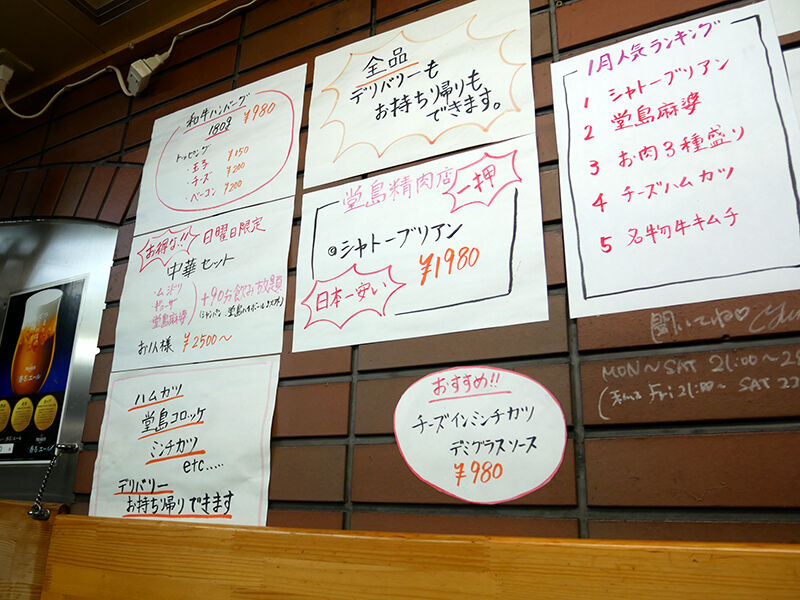 和牛ハンバーグ
180g ¥980
トッピング
・玉子 ¥150
・チーズ ¥200
・ベーコン ¥200
全品
デリバリーも
お持ち帰りも
できます。
1月人気ランキング
1 シャトーブリアン
2 堂島麻婆
3 お肉3種盛り
4 チーズハムカツ
5 名物牛キムチ
堂島精肉店
一押
◎シャトーブリアン
¥1980
日本一安い
お得な!! 日曜日限定
中華セット
ギョーザ
堂島麻婆
+90分飲み放題
お1人様 ¥2500〜
ハムカツ
堂島コロッケ
ミンチカツ
etc.....
デリバリー
お持ち帰りできます
おすすめ!!
チーズインミンチカツ
デミグラスソース
¥980
聞いてね♡
MON〜SAT 21:00〜
Fri 21:00〜 SAT